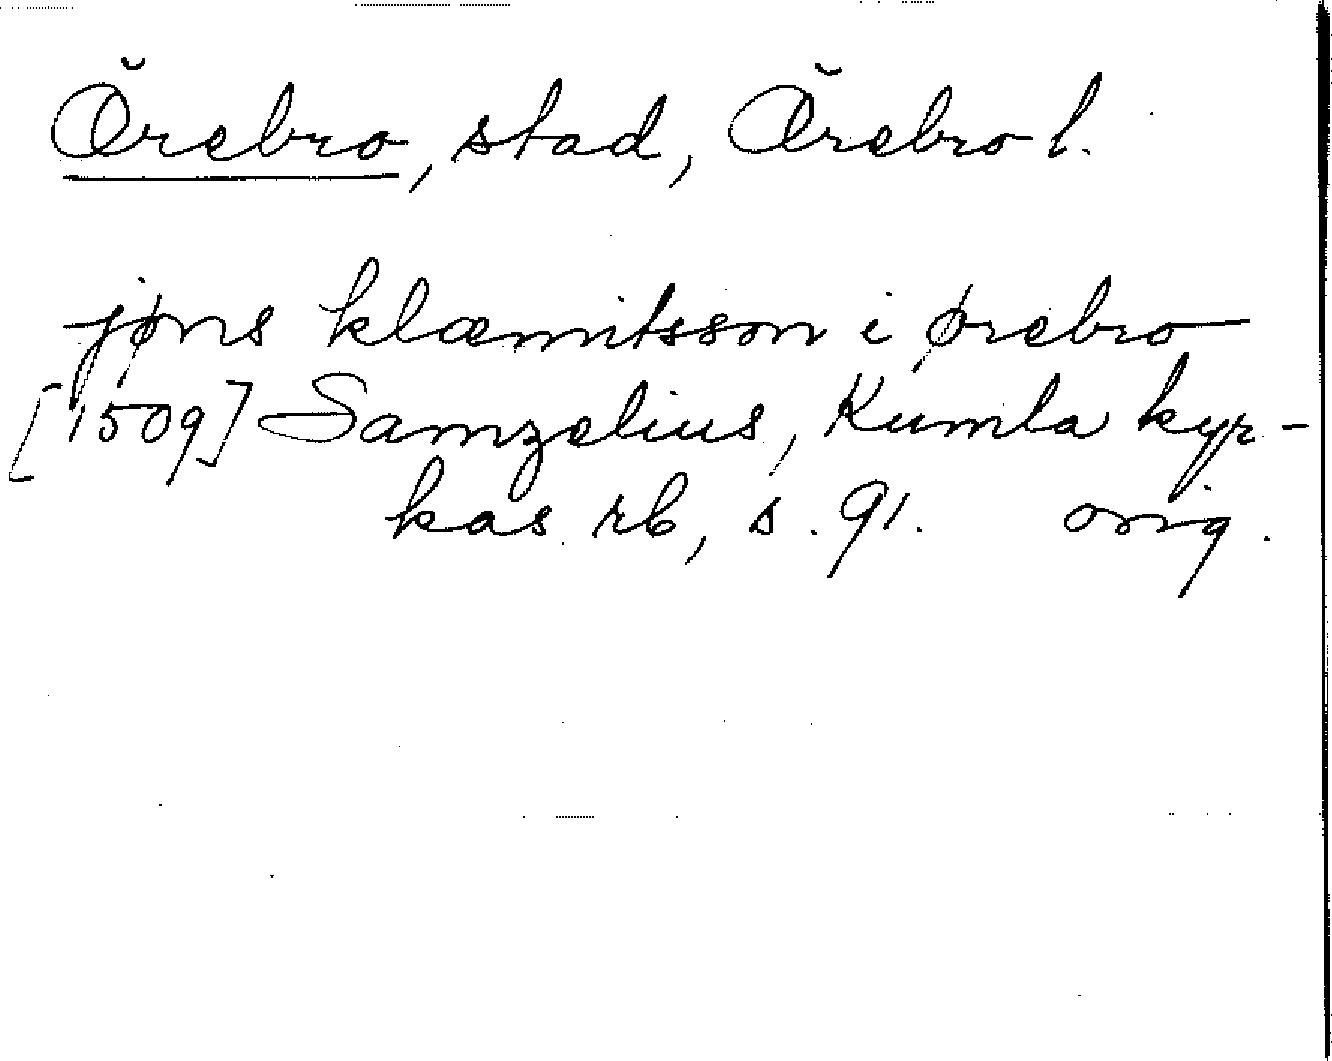 Örebro, stad, Örebro l.
jøns klæmitsson i ørebro
[1509] Samzelius, Kumla kyr-
kas rb, s. 91. orig.